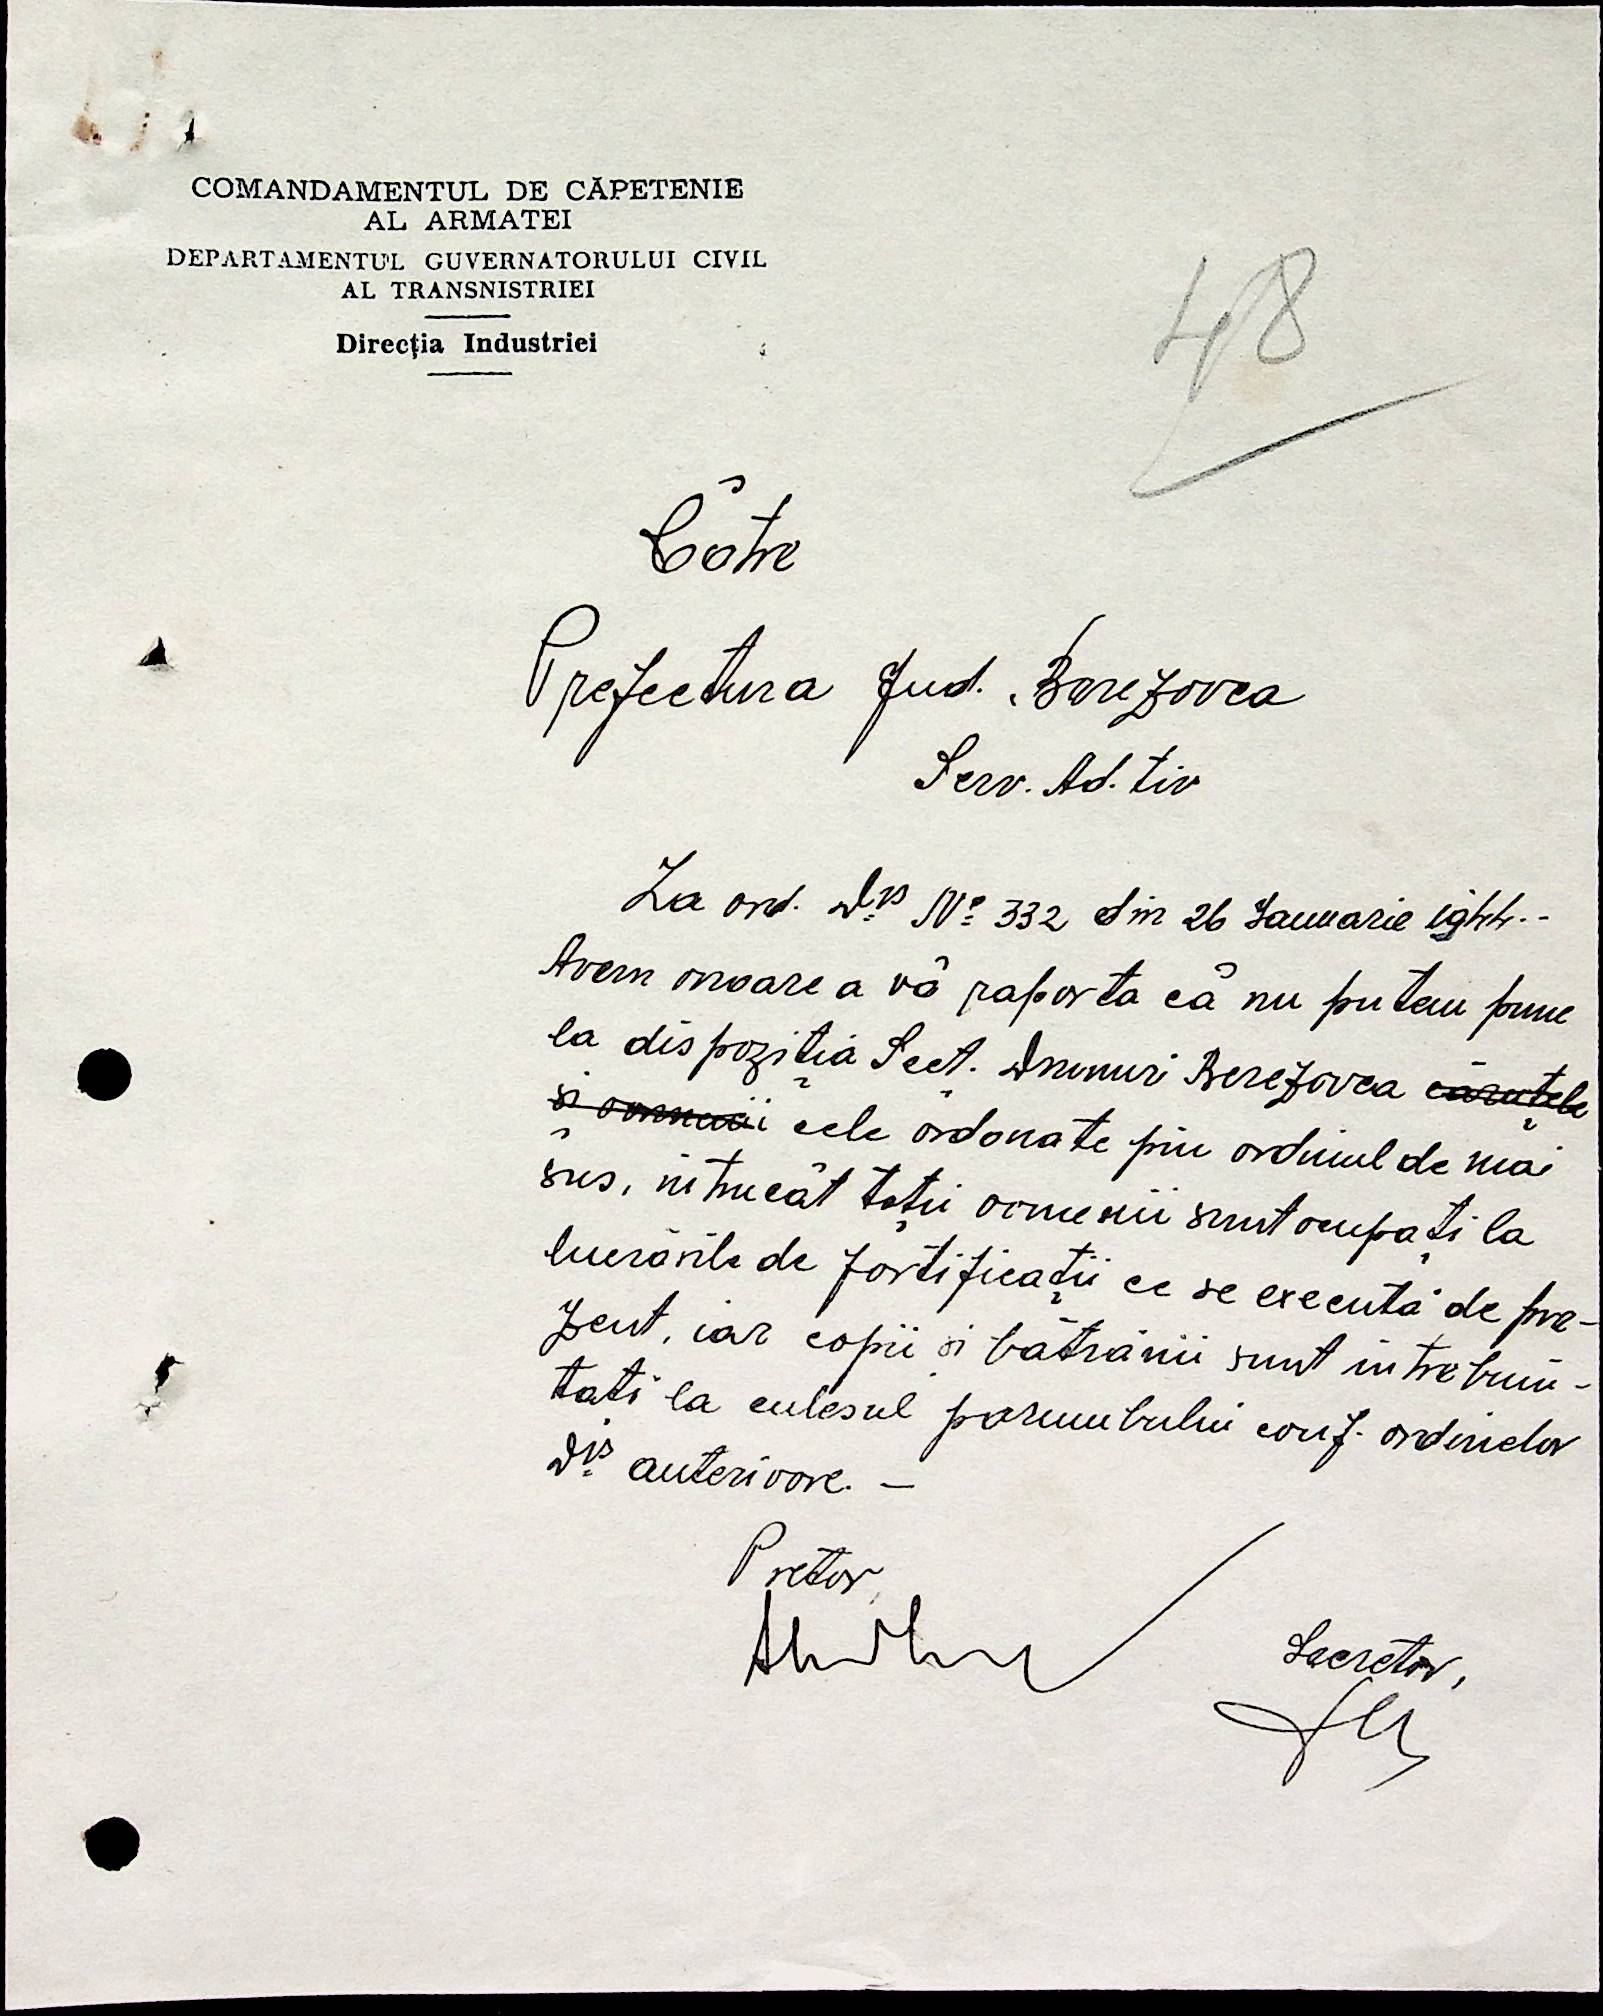 COMANDAMENTUL DE CĂPETENIE
AL ARMATEI
DEPARTAMENTUL GUVERNATORULUI CIVIL
AL TRANSNISTRIEI
Direcția Industriei
48
Către
Prefectura Jud. Berezovca
Serv. Ad. tiv
La ord. Dvs No 332 din 26 Ianuarie 1944.-
Avem onoare a vă raporta că nu putem pune
la dispoziția Sect. Drumuri Berezovca căruțele
și oamenii cele ordonate prin ordinul de mai
sus, întrucât toții oamenii sunt ocupați la
lucrările de fortificații ce se execută de pre-
zent, iar copii și bătrânii sunt întrebuin-
tați la culesul porumbului conf. ordinelor
Dvs anterioare. —
Pretor,
Secretar,